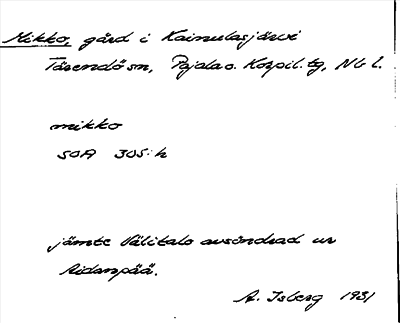 Mikko, gård i Kainulasjärvi
Tärendö sn, Pajala o. Korpil. tg, Nb l.
mikko
SOA 305:h
jämte Välitalo avsöndrad ur
Aidanpää.
A. Isberg 1931